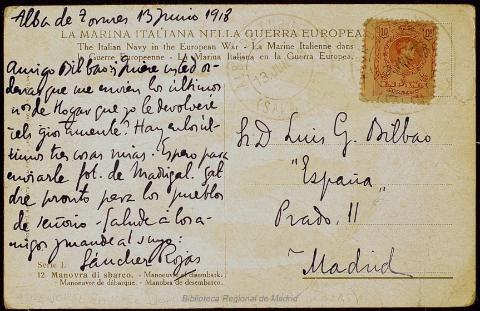 Alba de Tormes 13 Junio 1918
LA MARINA ITALIANA NELLA GUERRA EUROPEA
The Italian Navy in the European War - La Marine Italienne dans
Guerre Europeenne - La Marina Italiana en la Guerra Europea
Amigo Bilbao: Quiere usted or-
denar que me envíen los últimos
nos de Hogar que yo le devolveré
religiosamente? Hay en los úl-
timos tres cosas mías. Espero para
enviarle fot. de Madrigal. Sal
dré pronto para los pueblos
de señorío - Salude a los a-
migos y mande al suyo:
Sánchez Rojas
Serie I.
12. Manovra di sbarco. - Manoeuvre of disembark.
Manoeuvre de débarque. - Manobra de desembarco.
10
ESPAÑA
CORREOS
13 JUN
Sr D Luis G. Bilbao
"España"
Prado. 11
Madrid
Biblioteca Regional de Madrid